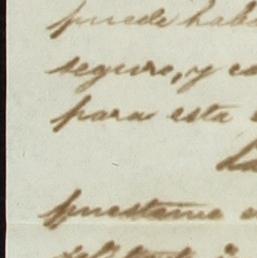 puede hab
segure, y e
para esta
La
puestame e